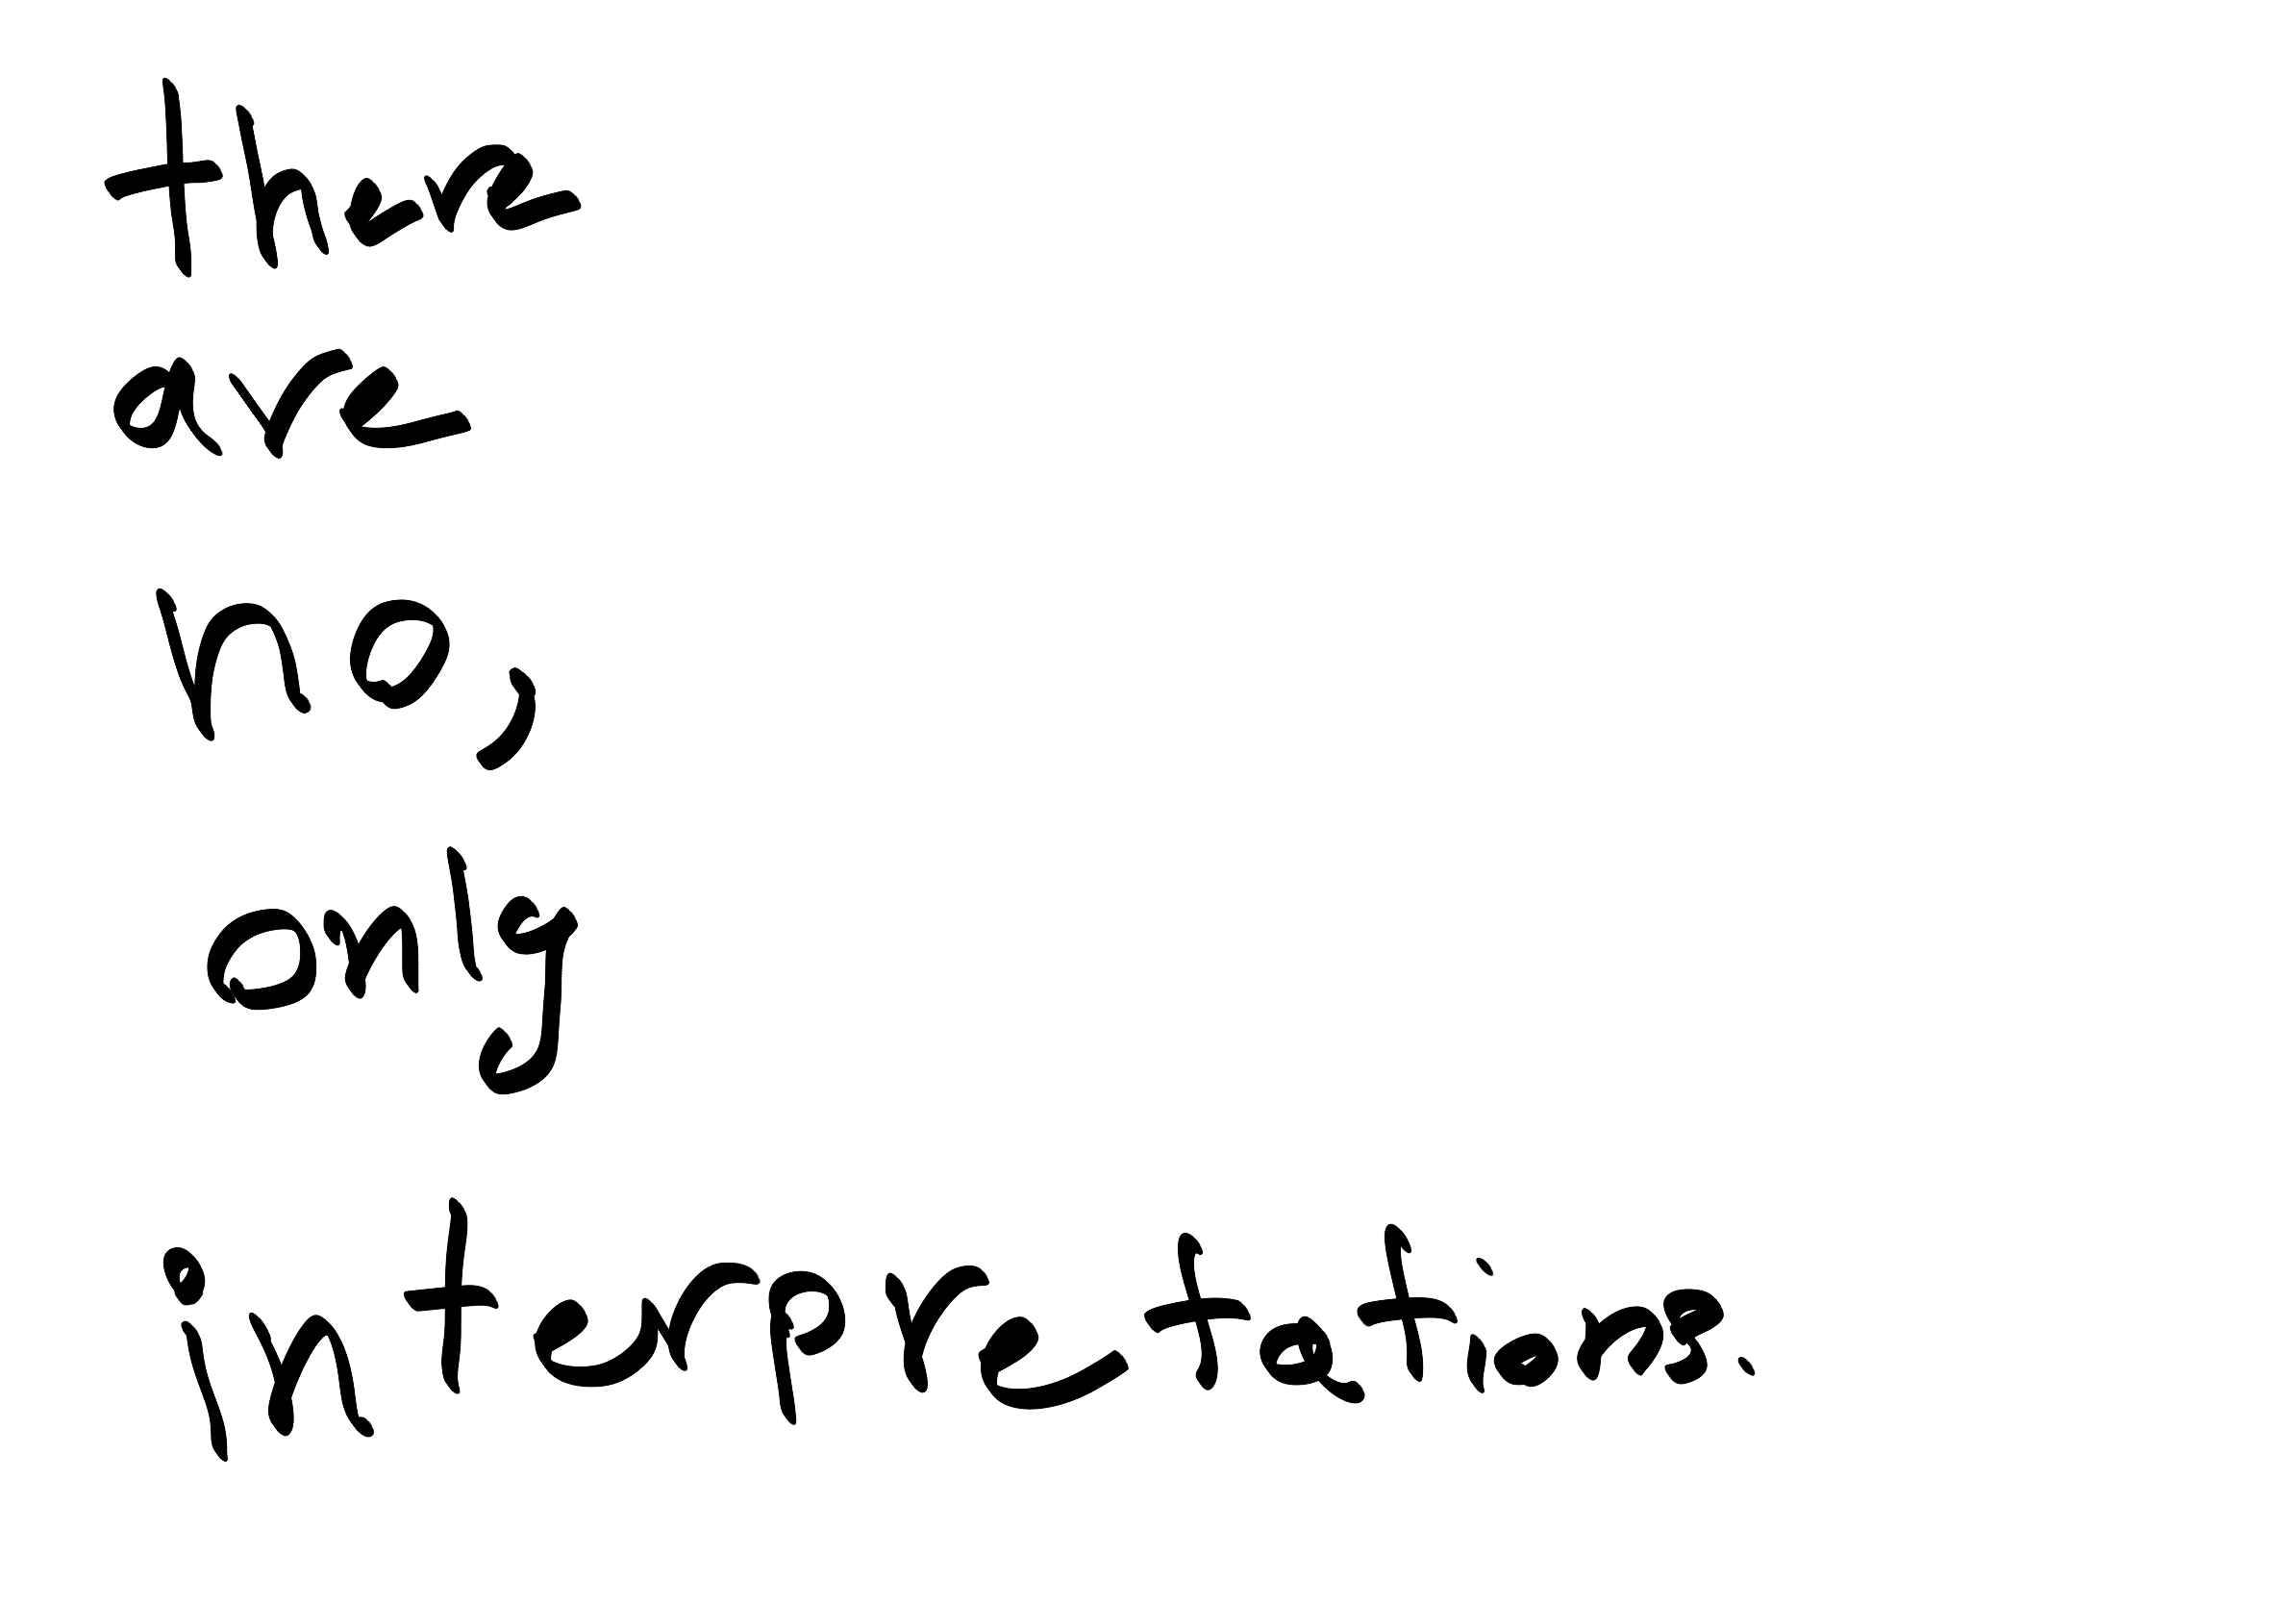 there
are
no,
only
interpretations.